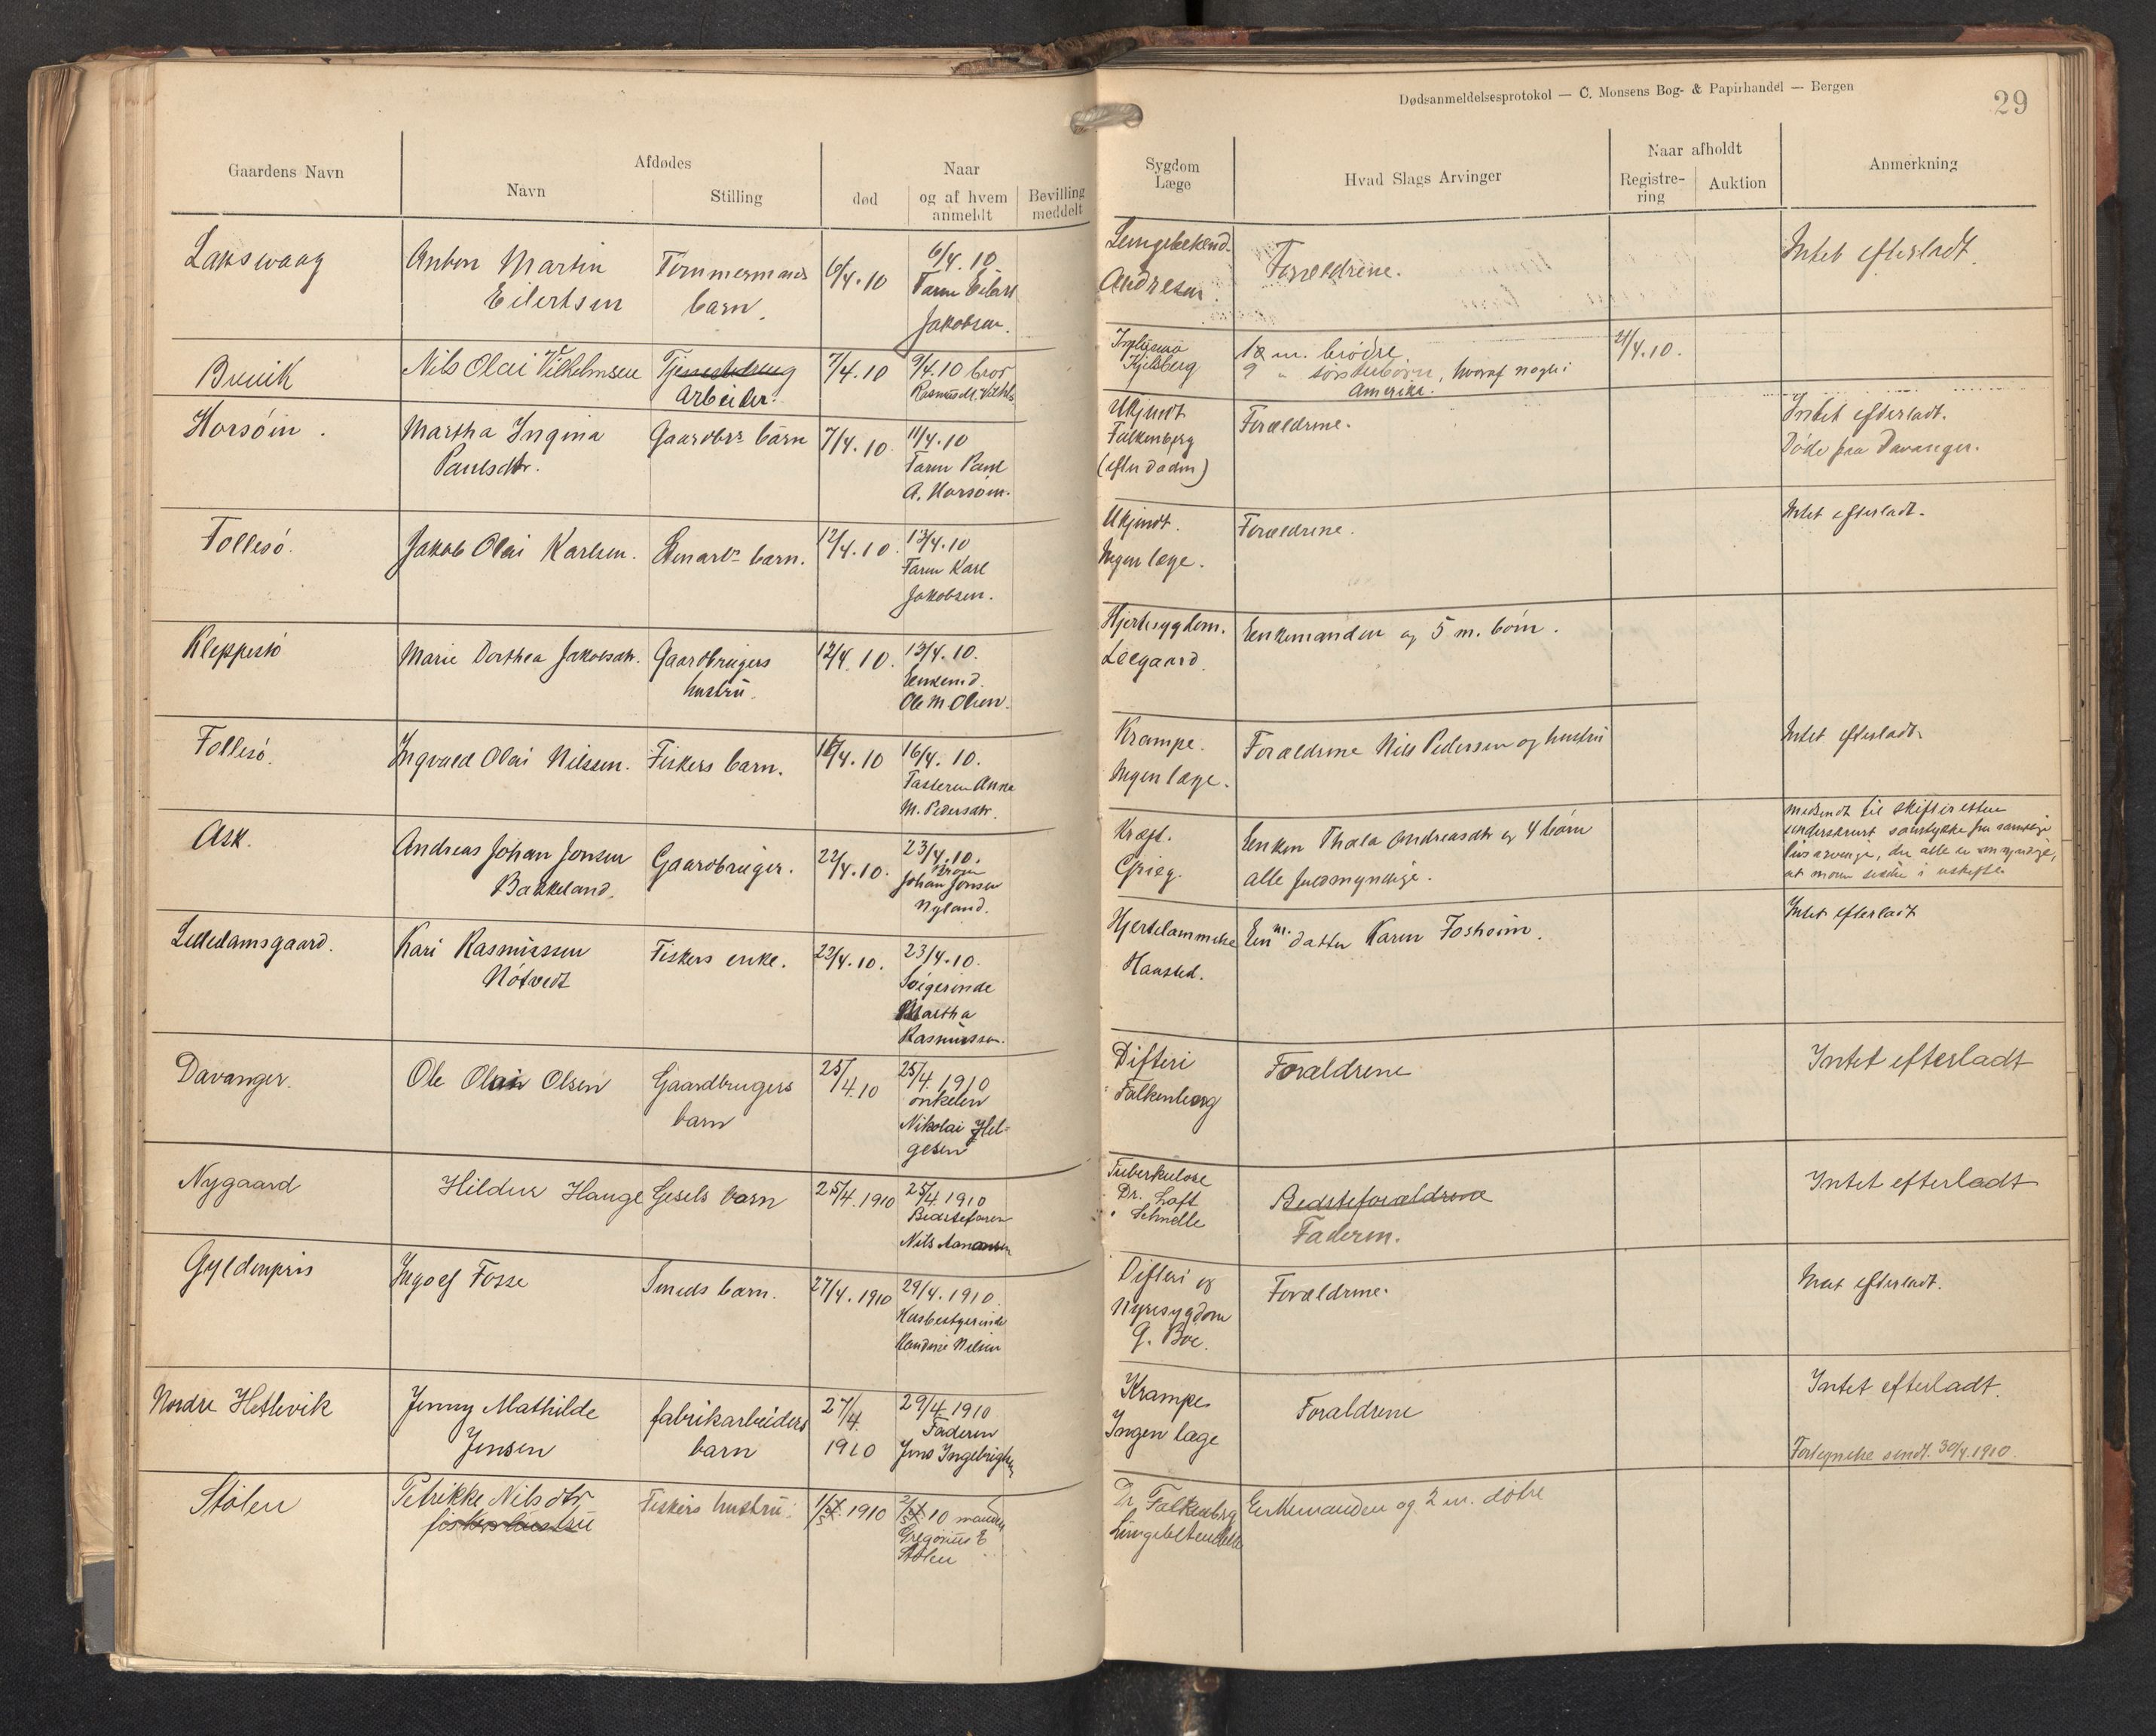 Dødsanmeldelsesprotokol — C. Monsens Bog- & Papirhandel — Bergen
29
Gaardens Navn
Afdødes
Navn
Stilling
Naar
død
og af hvem
anmeldt
Bevilling
meddelt
Sygdom
Læge
Hvad Slags Arvinger
Naar afholdt
Registre-
ring
Auktion
Anmerkning
Lakswaag
Anton Martin
Eilertsen
Tømmermands
barn.
6/4.10
6/4.10
Faren Eilert
Jakobsen.
Andresen.
Forældrene.
Intet efterladt.
Brevik
Nils Olai Vilhelmsen
Tjenestedreng
Arbeider.
7/4.10
9/4.10 bror
Kjelsberg
m. brødre.
" søskendebørn, hvoraf nogle i
Amerika.
21/4.10.
Horsøin.
Martha Ingina
Paulsdtr.
Gaardbrs barn
7/4.10.
11/4.10
Faren Paul
A. Horsøin.
Ukjendt
Falkenberg
(efter døden)
Forældrene.
Intet efterladt.
Døde paa Davanger.
Follesø.
Jakob Olai Karlsen.
barn.
12/4.10.
13/4.10
Faren Karl
Jakobsen.
Ukjendt.
Ingen læge.
Forældrene.
Intet efterladt.
Kleppestø
Marie Dorthea Jakobsdtr.
Gaardbrugers
hustru.
12/4.10.
13/4.10.
Enkemd.
Ole M. Olsen.
Hjertesygdom.
Leegaard.
Enkemanden og 5 m. børn.
Follesø.
Ingvald Olai Nilssen.
Fiskers barn.
/4.10
16/4.10.
Fasteren Anna
M. Pedersdtr.
Krampe.
Ingen læge.
Forældrene Nils Pedersen og hustru
Intet efterladt.
Ask.
Andreas Johan Jonsen
Bakkeland.
Gaardbruger.
22/4.10.
23/4.10.
Broren
Johan Jonsen
Nyland.
Kræft.
Grieg.
Enken Thala Andreasdtr og 4 børn
alle fuldmyndige.
medsendt til skifteretten
underskrevet samtykke fra samtlige
livsarvinge, der alle er myndige,
at moren sidder i uskiftet
Lilledamsgaard.
Kari Rasmussen
Nøtvedt
Fiskers enke.
22/4.10.
23/4.10.
Svigerinde
Martha
Rasmussen.
Hjertelammelse
Hansted.
En m. datter Karen Fosheim.
Intet efterladt
Davanger.
Ole Olai Olsen
Gaardbrugers
barn
25/4.10
25/4.1910
onkelen
Nikolai Hel-
gesen
Difteri
Falkenberg
Forældrene
Intet efterladt
Nygaard
Hildur Hauge
Gesels barn
25/4.1910
25/4.1910
Bedstefaren
Nils Aamansen
Tuberkulose
Dr. Loft
" Schnelle
Bedsteforældrene
Faderen.
Intet efterladt
Gyldenpris
Ingolf Fosse
Smeds barn.
27/4.1910
29/4.1910.
Husbestyrerinde
Nilsen
Difteri og
Nyresygdom
G. Boe.
Forældrene.
Intet efterladt.
Nordre Hetlevik
Jenny Mathilde
Jensen
fabrikarbeiders
barn
27/4.
1910
29/4 1910
Faderen
Jens Ingebrigtsen
Krampe
Ingen læge
Forældrene
Intet efterladt.
Stølen
Petrikke Nilsdtr
fiskerhustru
Fiskers hustru.
1/5. 1910
2/5 10 manden
Gregorius E
Stølen
Dr Falkenberg
Lungebetændelse
Enkemanden og 2 m. døtre
Fortegnelse sendt. 30/4.1910.